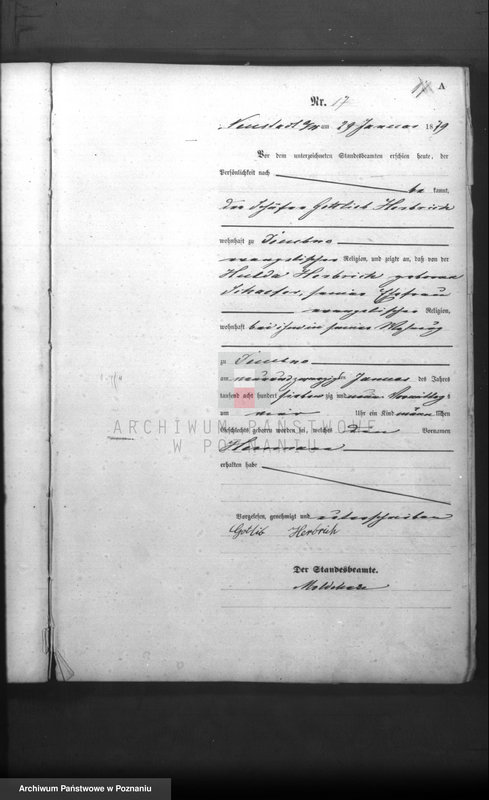 17 A
Nr. 17
Neustadt am 29 Januar 1879
Vor dem unterzeichneten Standesbeamten erschien heute, der
Persönlichkeit nach
be kannt,
der Gottlieb Herbrich
wohnhaft zu
evangelischer Religion, und zeigte an, daß von der
Hulda Herbrich geborene
seiner Ehefrau
evangelischer Religion,
wohnhaft bei ihm in seiner Wohnung
zu
am neunundzwanzigsten Januar des Jahres
tausend acht hundert siebenzig und neun Vormittags
um vier Uhr ein Kind männlichen
Geschlechts geboren worden sei, welches den Vornamen
Hermann
erhalten habe
Vorgelesen, genehmigt und unterschrieben
Gotlib Herbrich
Der Standesbeamte.
ARCHIWUM PAŃSTWOWE
W POZNANIU
Archiwum Państwowe w Poznaniu